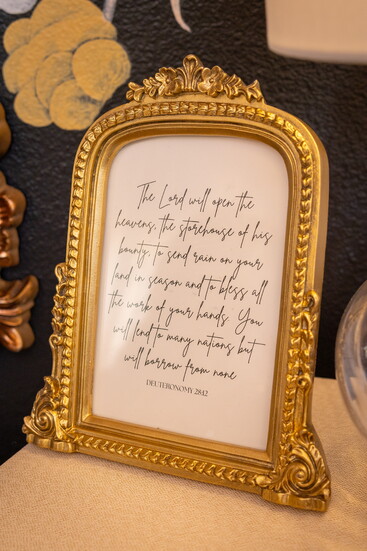 The Lord will open the
heavens, the storehouse of his
bounty, to send rain on your
land in season and to bless all
the work of your hands. You
will lend to many nations but
will borrow from none
DEUTERONOMY 28:12